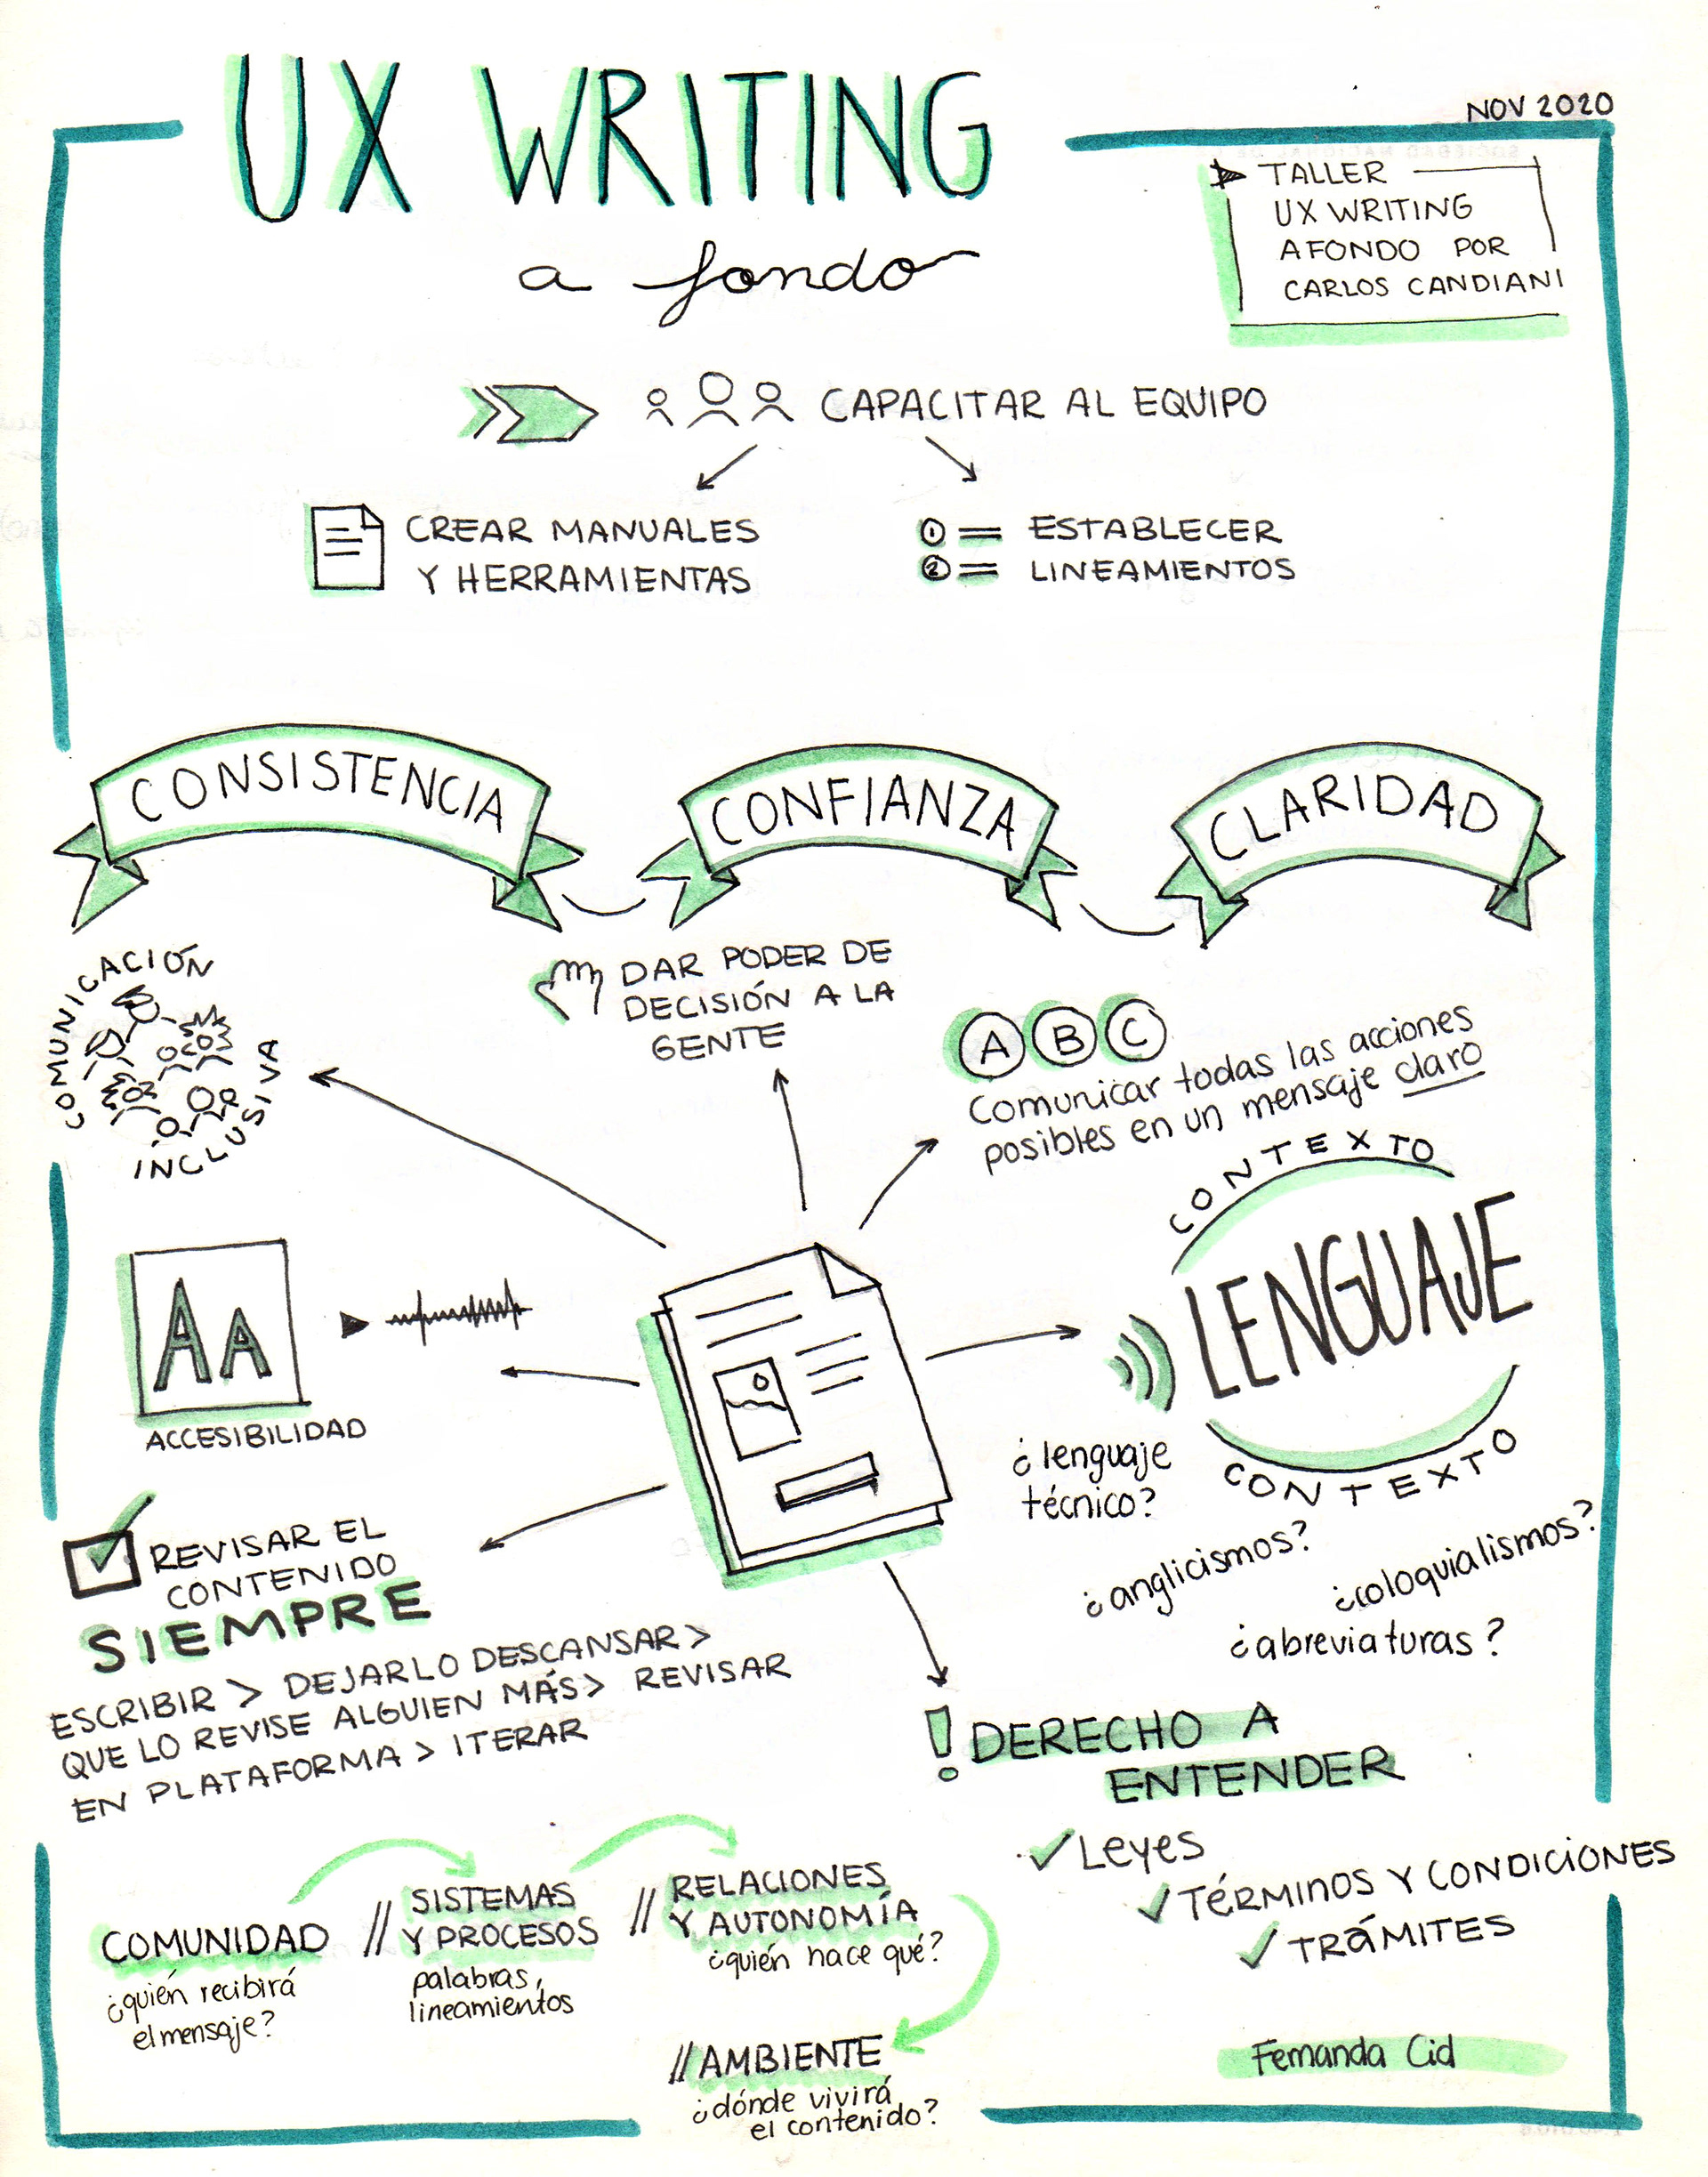 UX WRITING
a fondo
NOV 2020
TALLER
UX WRITING
A FONDO POR
CARLOS CANDIANI
CAPACITAR AL EQUIPO
CREAR MANUALES
Y HERRAMIENTAS
1 = ESTABLECER
2 = LINEAMIENTOS
CONSISTENCIA
CONFIANZA
CLARIDAD
COMUNICACIÓN
INCLUSIVA
DAR PODER DE
DECISIÓN A LA
GENTE
A B C
Comunicar todas las acciones
posibles en un mensaje claro
CONTEXTO
LENGUAJE
CONTEXTO
¿lenguaje
técnico?
¿anglicismos?
¿coloquialismos?
¿abreviaturas?
AA
ACCESIBILIDAD
REVISAR EL
CONTENIDO
SIEMPRE
ESCRIBIR > DEJARLO DESCANSAR >
QUE LO REVISE ALGUIEN MÁS > REVISAR
EN PLATAFORMA > ITERAR
! DERECHO A
ENTENDER
✓ Leyes
✓ TÉRMINOS Y CONDICIONES
✓ TRÁMITES
COMUNIDAD
¿quién recibirá
el mensaje?
// SISTEMAS
Y PROCESOS
palabras,
lineamientos
// RELACIONES
Y AUTONOMÍA
¿quién hace qué?
// AMBIENTE
¿dónde vivirá
el contenido?
Fernanda Cid